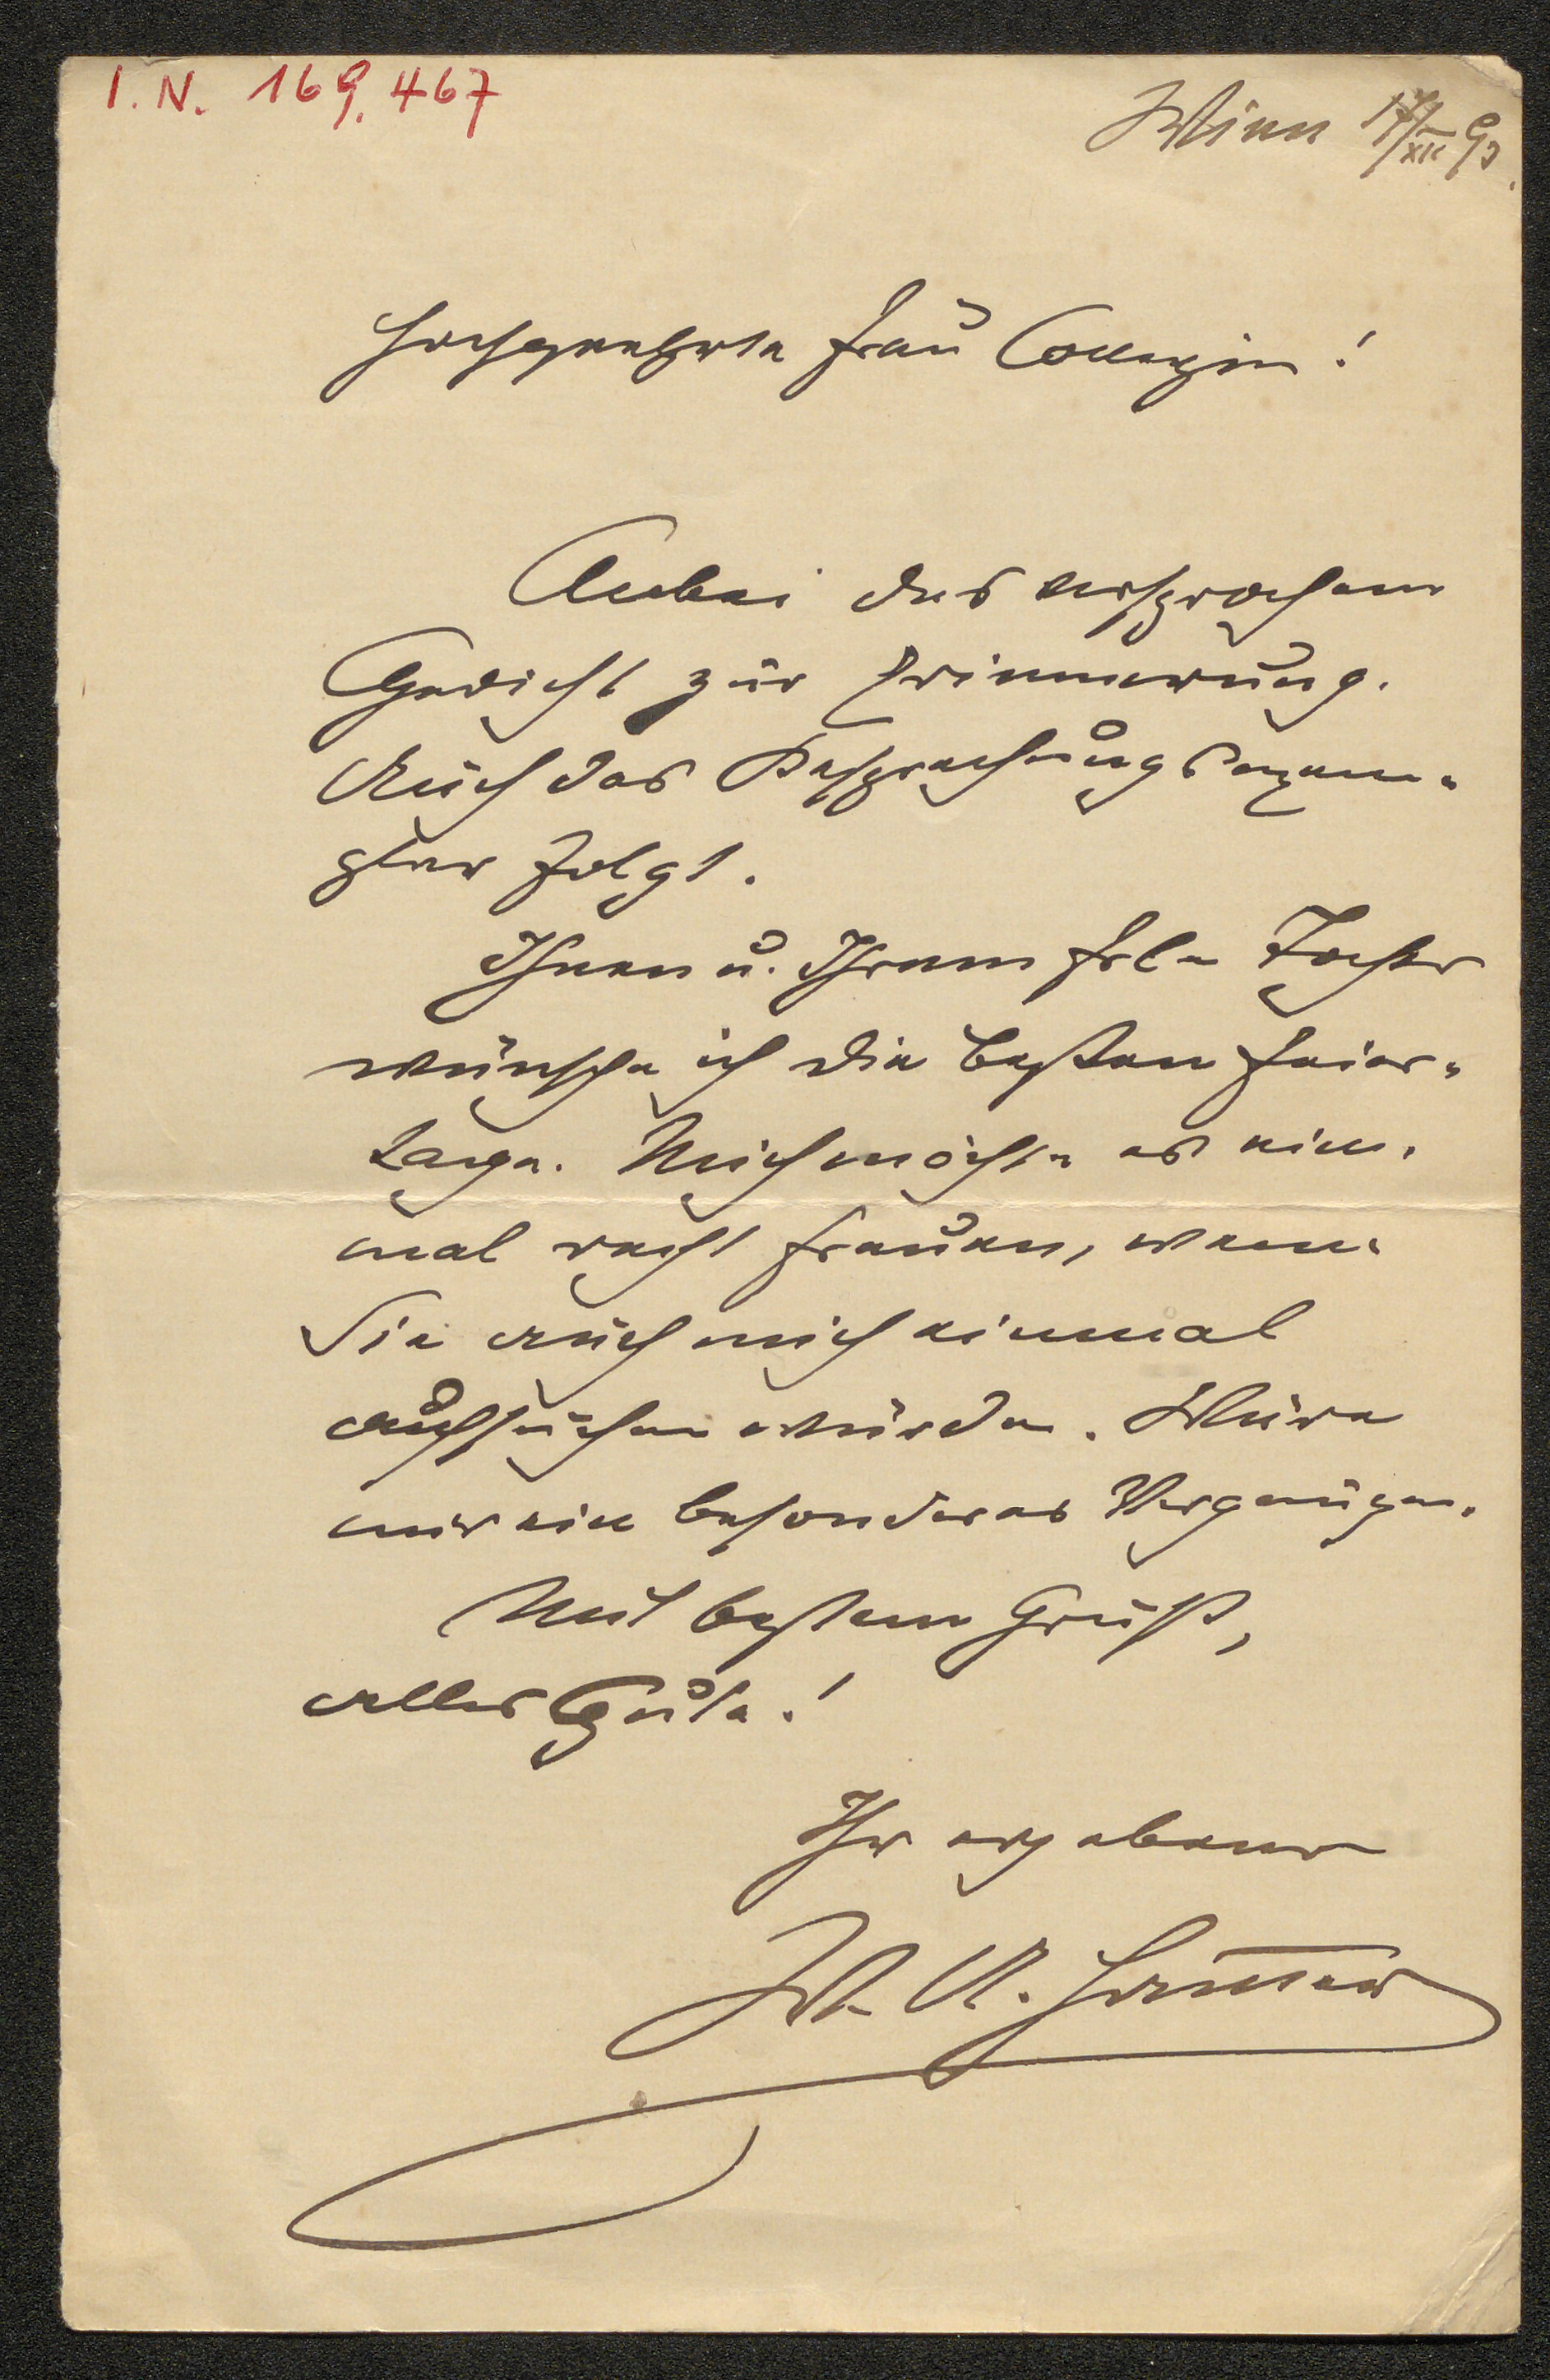 I. N. 169.467
Wien 17/XII 90.
Hochgeehrte Frau Collegin!
Anbei das versprochene
Gedicht zur Erinnerung.
Auch das Besprechungsexem-
plar folgt.
Ihnen u. Ihrem Frln Tochter
wünsche ich die besten Feier-
tage. Mich möchte es ein-
mal recht freuen, wenn
Sie auch mich einmal
aufsuchen würden. Wäre
mir ein besonderes Vergnügen.
Mit bestem Gruß,
alles Gute!
Ihr ergebener
W. A. Hammer